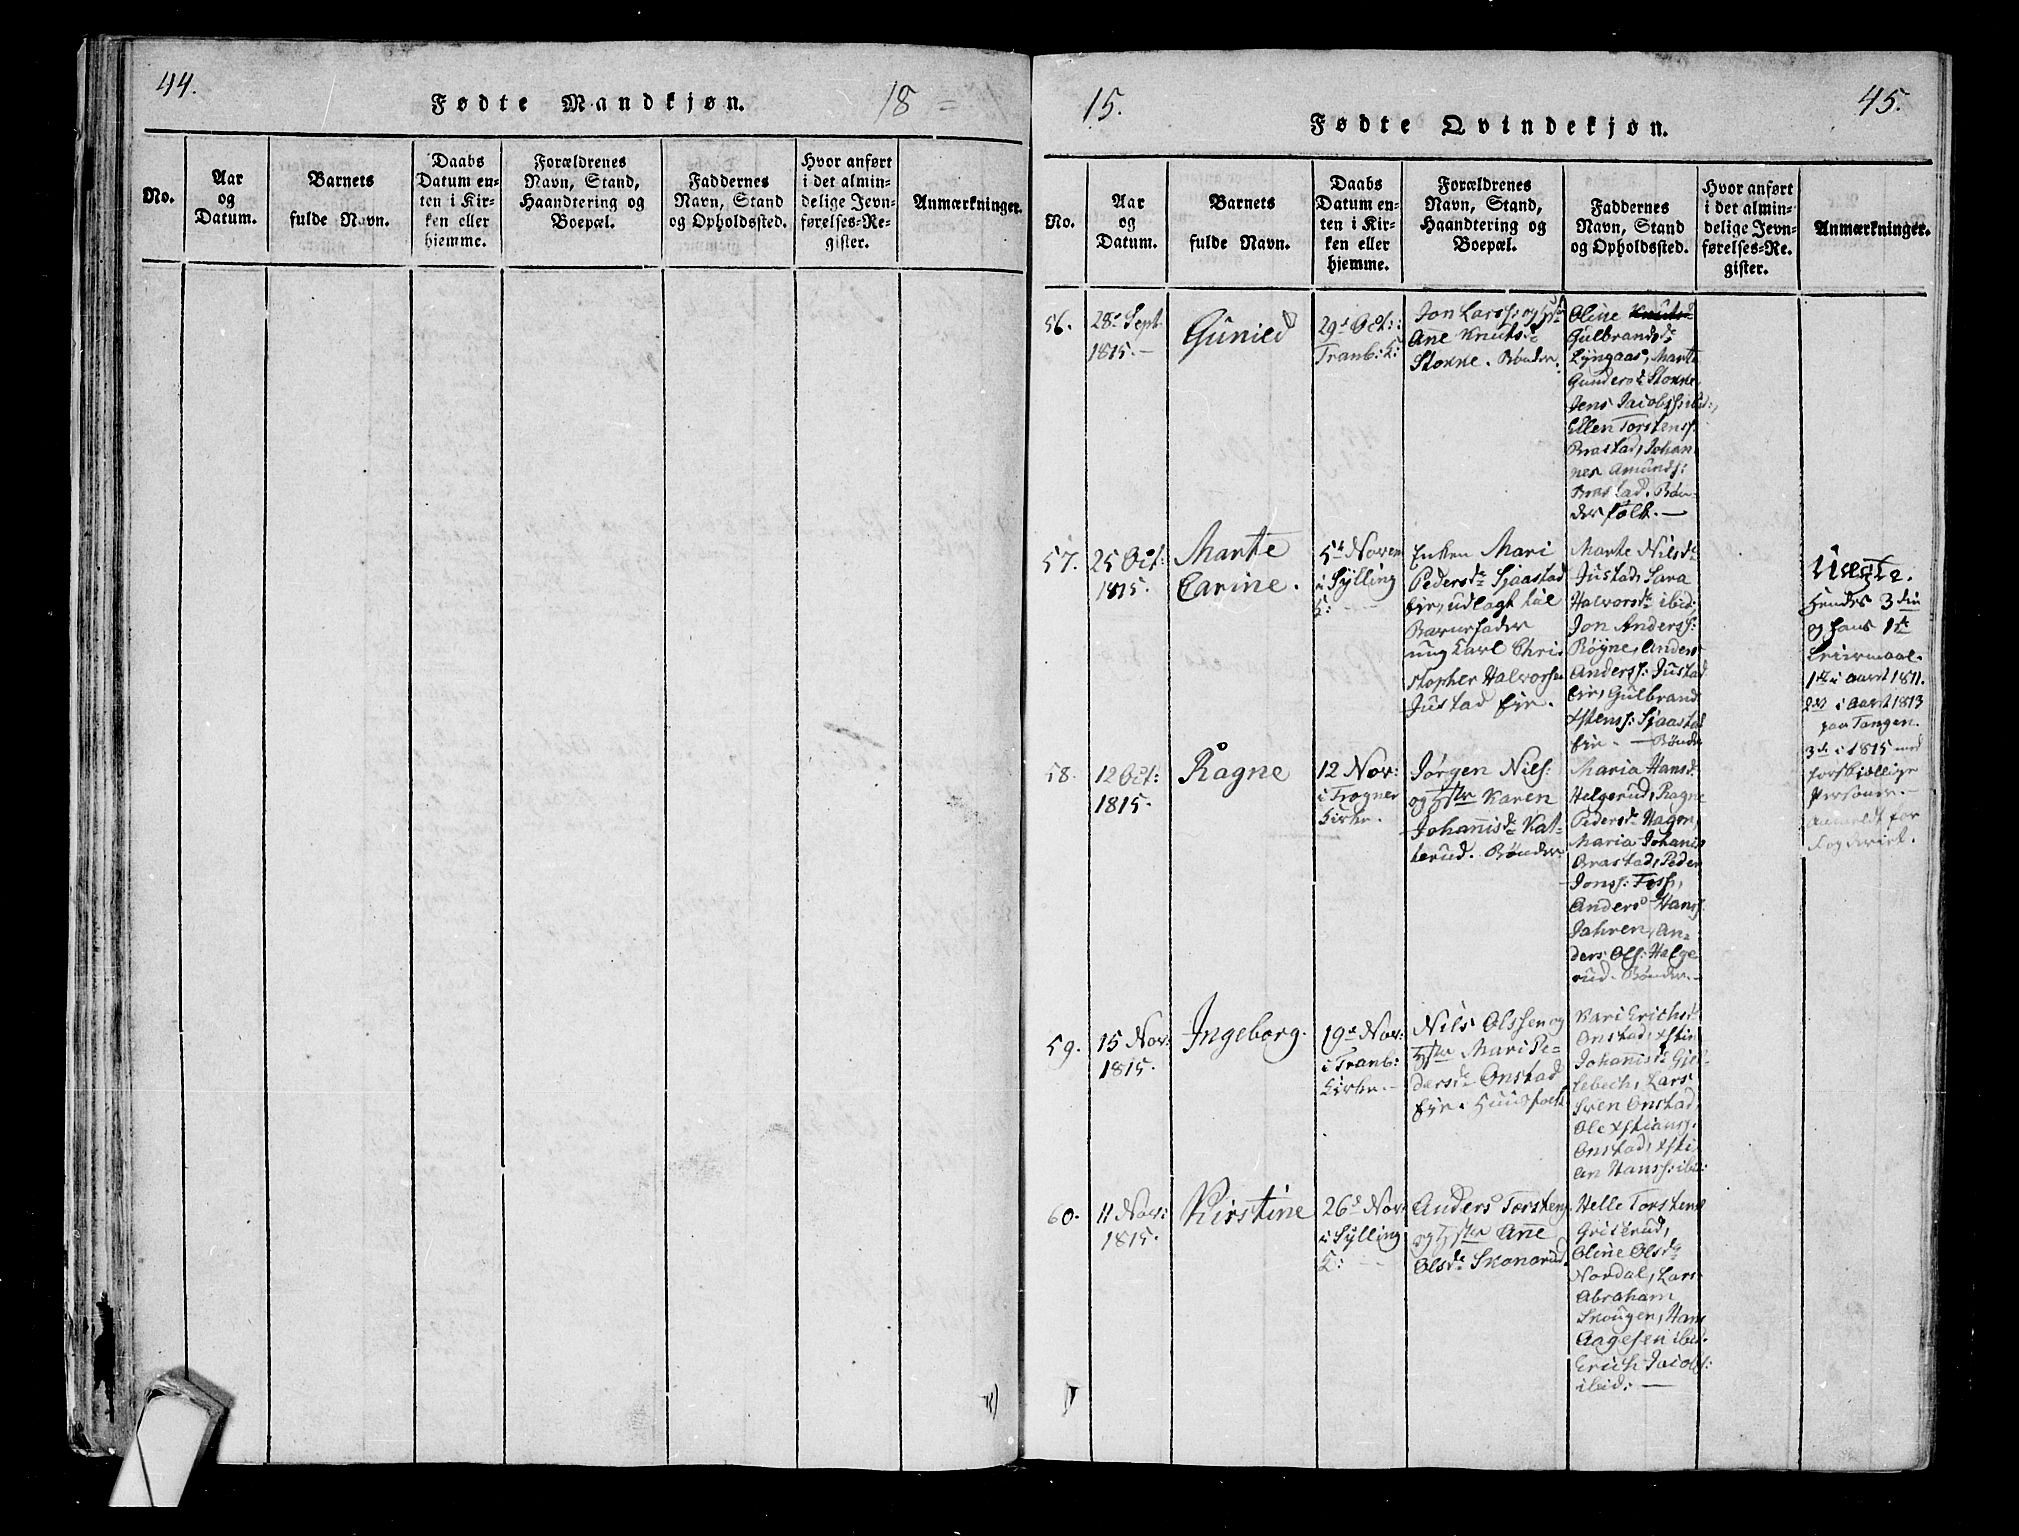 44.
Fødte Mandkjøn.
18
No.
Aar
og
Datum.
Barnets
fulde Navn.
Daabs
Datum en-
ten i Kir-
ken eller
hjemme.
Forældrenes
Navn, Stand,
Haandtering og
Boepæl.
Faddernes
Navn, Stand
og Opholdssted.
Hvor anført
i det almin-
delige Jevn-
førelses-Re-
gister.
Anmærkninger.
15.
45.
Fødte Qvindekjøn.
No.
Aar
og
Datum.
Barnets
fulde Navn.
Daabs
Datum en-
ten i Kir-
ken eller
hjemme.
Forældrenes
Navn, Stand,
Haandtering og
Boepæl.
Faddernes
Navn, Stand
og Opholdssted.
Hvor anført
i det almin-
delige Jevn-
førelses-Re-
gister.
Anmærkninger.
56.
28de Sept.
1815.
Gunild
29de Oct:
Tranb: K:
Jon Larss: og
Ane Knutsd
Stokke. Bønder.
Oline
Gulbrandsd
Lyngaas, Marte
Gundersd Stokke,
Jens Jacobss: ibid:,
Ellen Torstens
Brastad, Johan-
nes Amunds:
Brastad. Bøn-
der folk.
57.
25 Oct:
1815.
Marte
Carine.
5te Novem
i Sylling
K:
Enken Mari
Pedersd Sjaastad
Eie, udlagt til
Barnefader
ung Carl Chri-
stopher Halvorsen
Justad Eie.
Marte Nilsd
Justad, Sara
Halvorsd ibid:
Jon Anderss:
Røyne, Anders
Anderss: Justad
Eie, Gulbrand
Xstenss: Sjaastad
Eie. Bønder
Uægte.
Hendes 3die
og hans 1ste
Leiermaal.
1ste i aaret 1811.
2det i aaret 1813
paa Tangen.
3die i 1815 med
forskjellige
Personer.
Anmeldt for
Fogderiet.
58.
12 Oct:
1815.
Ragne
12 Nov:
i Frogner
Kirke.
Jørgen Niels:
og Hstr Karen
Johannisd Kat-
terud. Bønder
Maria Hansd.
Helgerud, Ragne
Pedersd Hagen,
Maria Johanis
Brastad, Peder
Jonss: Foss,
Anders Hanss.
Jahren, An-
ders Ols: Helge
rud. Bønder.
59.
15 Nov:
1815.
Ingeborg.
19de Nov:
i Tranb:
Kirke.
Nils Olssen og
Hstr Mari Pe-
dersd Onstad
Eie. Huusfolk
Kari Erichsd
Onstad, Xstin
Johanisd Gjel-
lebech, Lars
Sven Onstad,
Ole Xstianss.
Onstad, Xsti-
an Hanss: ibid:
60.
11 Nov:
1815.
Kirstine
26de Nov:
i Sylling
K:
Anders Torstens
og Hstr Ane
Olsd Skonorud.
Helle Torstens
Griterud,
Oline Olsd
Nordal, Lars
Abraham
Skougen, Hans
Aagesen ibid.
Erich Jacobs:
ibid: